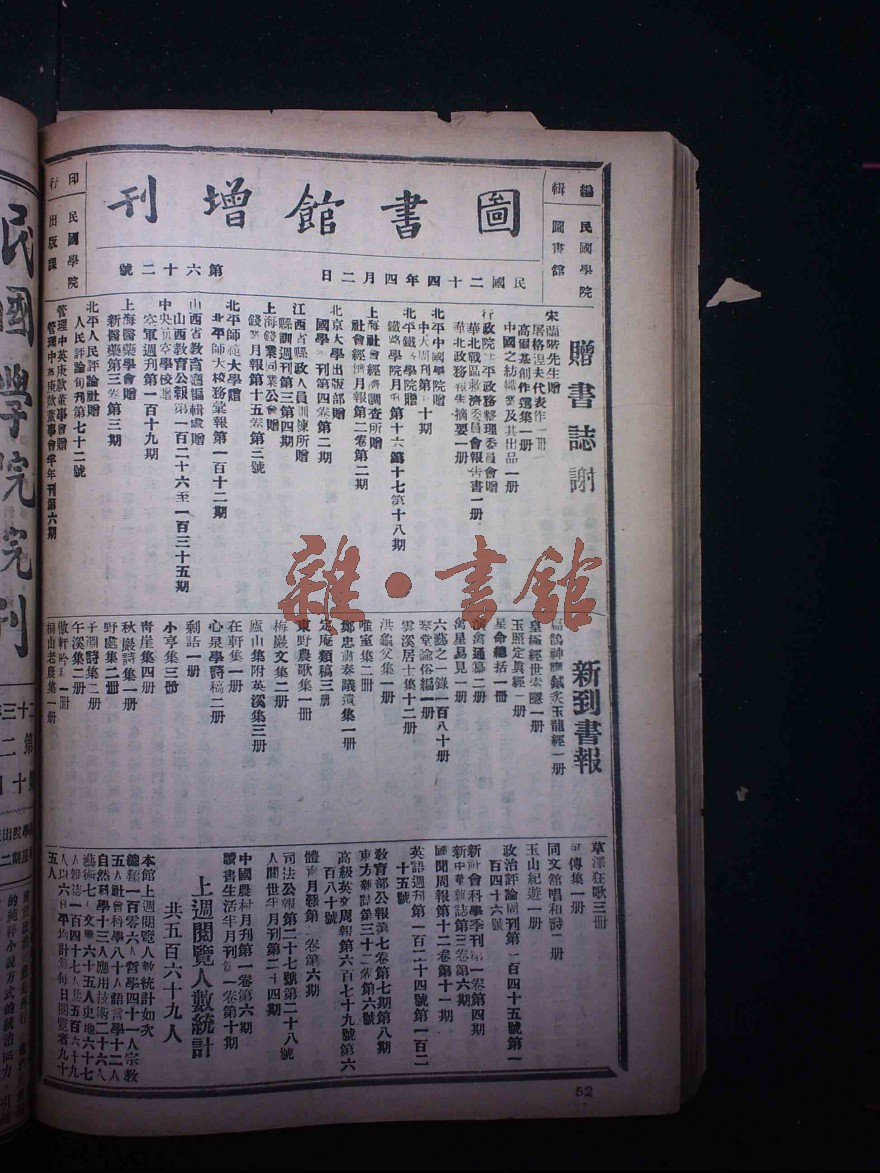 編輯 民國學院圖書館
圖書館增刊
民國二十四年四月二日 第六十二號
印行 民國學院出版課
贈書誌謝
宋蘭畹先生贈
屠格涅夫代表作一冊
高爾基創作選集一冊
中國之紡織業及其出品一冊
行政院駐平政務整理委員會贈
華北戰區救濟委員會報告書一冊
華北政務報告摘要一冊
北平中國學院贈
中大周刊第十期
北平鐵路學院贈
鐵路學院月刊第十六第十七第十八期
上海社會經濟調查所贈
社會經濟月報第二卷第二期
北京大學出版部贈
國學季刊第四卷第二期
江西省縣政人員訓練所贈
縣訓週刊第三第四期
上海錢業同業公會贈
錢業月報第十五卷第三號
北平師範大學贈
北平師大校務彙報第一百十二期
山西省教育廳編輯處贈
山西教育公報第一百二十六至一百三十五期
中央航空學校贈
空軍週刊第一百十九期
上海醫藥學會贈
新醫藥第三卷第三期
北平人民評論社贈
人民評論旬刊第七十二號
管理中英庚款董事會贈
管理中英庚款董事會半年刊第六期
新到書報
扁鵲神應鍼灸玉龍經一冊
皇極經世索隱一冊
玉照定眞經一冊
星命總括一冊
演禽通纂二冊
禽星易見一冊
六藝之一錄一百八十冊
琴堂諭俗編一冊
雲溪居士集十二冊
洪龜父集一冊
唯室集二冊
鄭忠肅奏議遺集一冊
定庵類稿三冊
東野農歌集一冊
梅巖文集二冊
廬山集附英溪集三冊
在軒集一冊
心泉學詩稿二冊
剩語一冊
小亨集三冊
靑崖集四冊
秋巖詩集一冊
野處集二冊
子淵詩集二冊
午溪集二冊
傲軒吟稿一冊
桐山老農集一冊
草澤狂歌三冊
可傳集一冊
同文館唱和詩一冊
玉山紀遊一冊
政治評論周刊第一百四十五號第一
百四十六號
新社會科學季刊第一卷第四期
新中華雜誌第三卷第六期
國聞周報第十二卷第十一期
英語週刊第一百二十四號第一百二
十五號
敎育部公報第七卷第七期第八期
東方雜誌第三十二卷第六號
高級英文周報第六百七十九號第六
百八十號
體育月報第一卷第六期
司法公報第二十七號第二十八號
人間世半月刊第二十四期
中國農村月刊第一卷第六期
讀書生活半月刊第一卷第十期
上週閱覽人數統計
共五百六十九人
本館上週閱覽人數統計如次
總類一百零六人哲學四十一人宗教
五人社會科學八十人語言學十二人
自然科學十三人應用技術二十六人
藝術七人文學六十五人史地六十七
人雜誌一百四十七人共五百六十九
人以六日平均計算每日閱覽者九十
五人
52
民國學院院刊
雜·書館